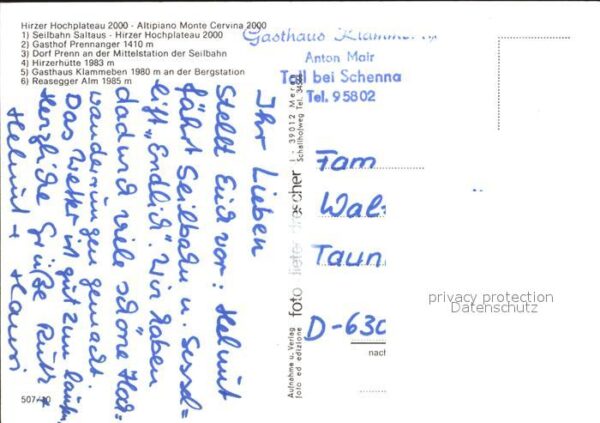 Hirzer Hochplateau 2000 - Altipiano Monte Cervina 2000
1) Seilbahn Saltaus - Hirzer Hochplateau 2000
2) Gasthof Prennanger 1410 m
3) Dorf Prenn an der Mittelstation der Seilbahn
4) Hirzerhütte 1983 m
5) Gasthaus Klammeben 1980 m an der Bergstation
6) Reasegger Alm 1985 m
Gasthaus
Anton Mair
Tall bei Schenna
Tel. 95802
Ihr Lieben
Stellt Euch vor: Helmut
fährt Seilbahn u. Sessel=
lift „Endlich". Wir haben
dadurch viele schöne
wanderungen gemacht.
Das Wetter ist gut zum laufen,
Herzliche Grüße Ruth +
Helmut + Hansi
507/10
Aufnahme u. Verlag
foto ed edizione
foto drescher
I - 39012
Schallhofweg Tel.
Fam
Wal
Taun
D-630
nach
privacy protection
Datenschutz